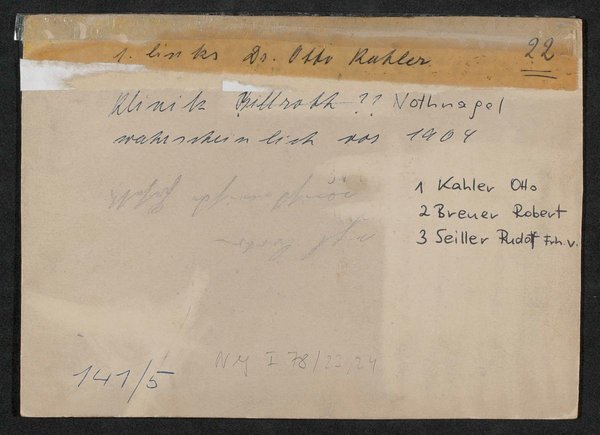 1. links Dr. Otto Kahler 22
Klinik Billroth ?? Nothnagel
wahrscheinlich vor 1904
1 Kahler Otto
2 Breuer Robert
3 Seiller Rudolf Frh. v.
141/5
I 78/23,24